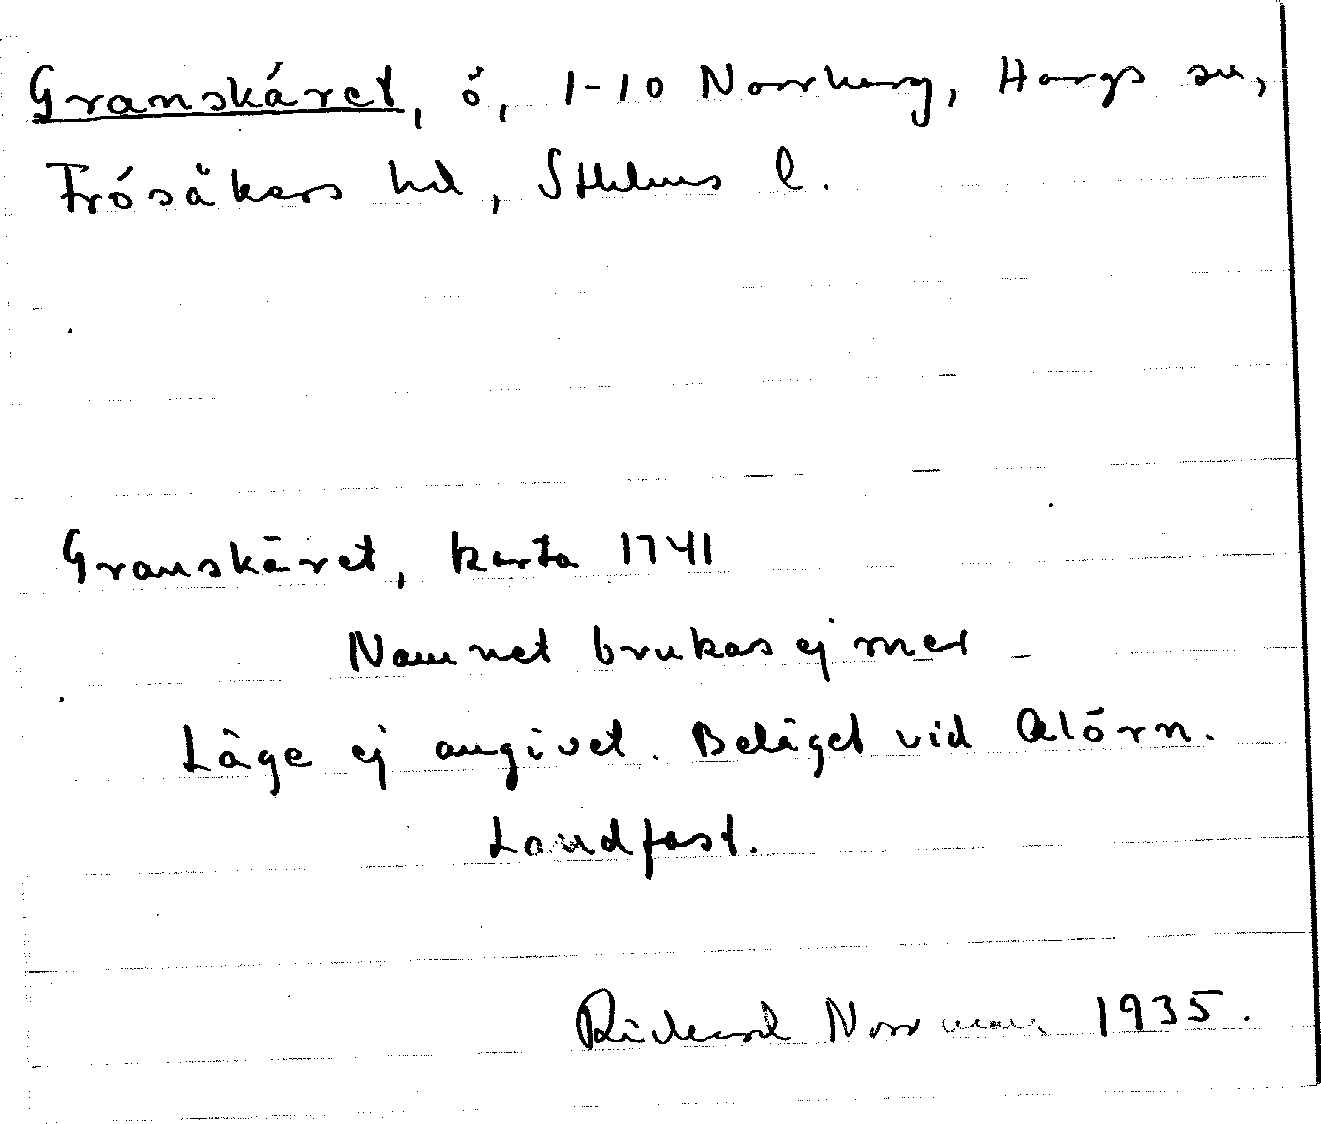 Granskäret, ö, 1-10 Norrharg, Hargs sn,
Frösåkers hd, Sthlms l.
Granskäret, karta 1741
Namnet brukas ej mer
Läge ej angivet. Beläget vid Alörn.
Landfast.
Richard Norrman 1935.